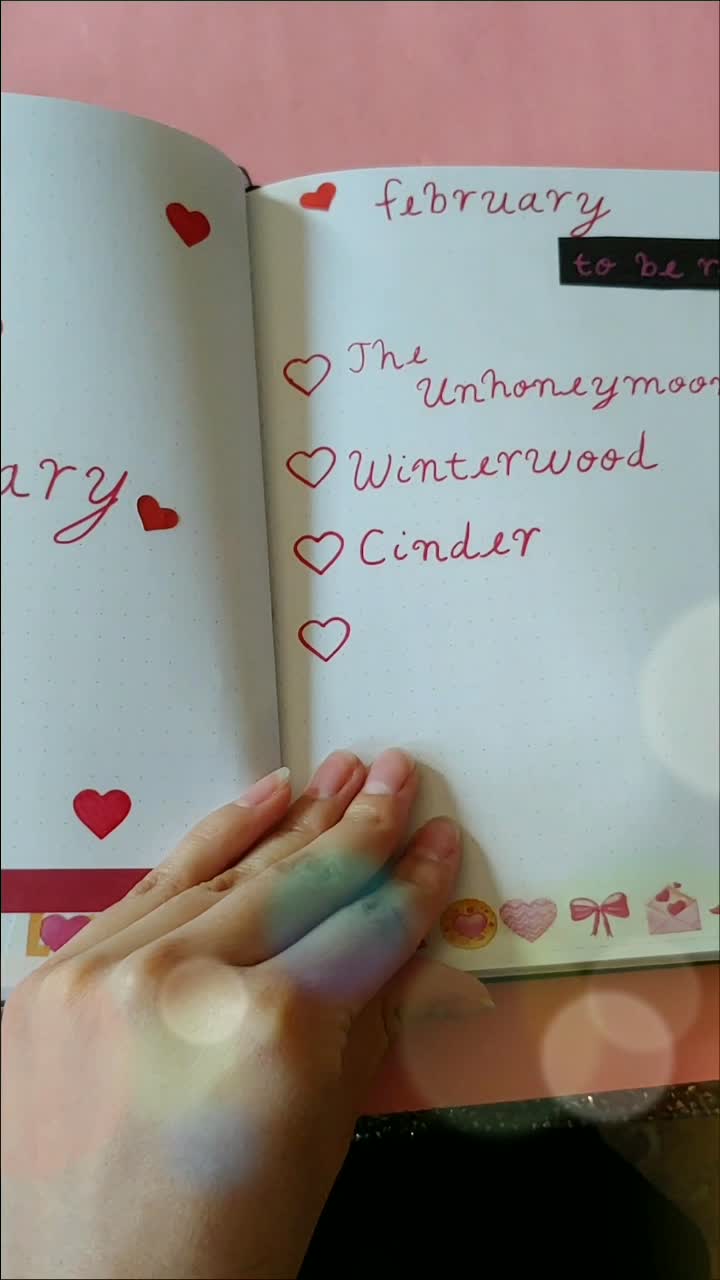 february
to be
The
Unhoneymoon
Winterwood
ary
Cinder